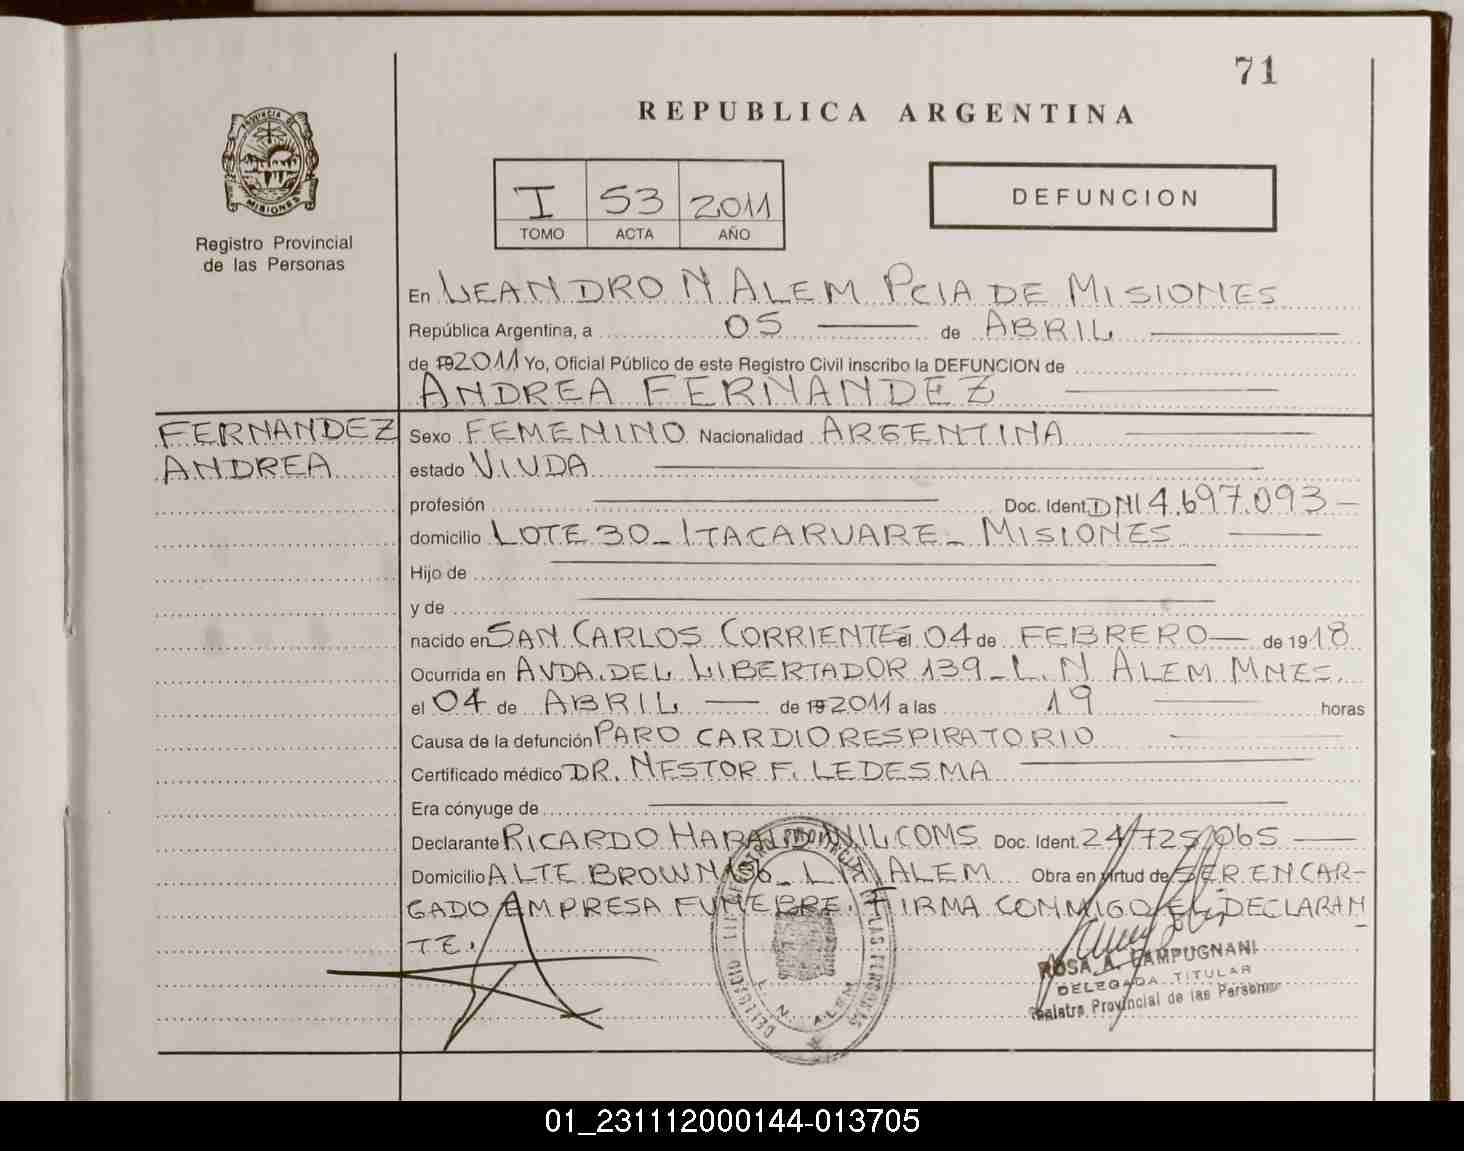 71
REPUBLICA ARGENTINA
PROVINCIA DE
MISIONES
Registro Provincial
de las Personas
I 53 2011
TOMO ACTA AÑO
DEFUNCION
En LEANDRO N ALEM PCIA DE MISIONES
República Argentina, a 05 de ABRIL
de 192011 Yo, Oficial Público de este Registro Civil inscribo la DEFUNCION de
ANDREA FERNANDEZ
FERNANDEZ
ANDREA
Sexo FEMENINO Nacionalidad ARGENTINA
estado VIUDA
profesión Doc. Ident. DNI 4.697.093
domicilio LOTE 30 - ITACARUARE - MISIONES
Hijo de
y de
nacido en SAN CARLOS CORRIENTES el 04 de FEBRERO de 1918
Ocurrida en AVDA. DEL LIBERTADOR 139 - L. N. ALEM MNES.
el 04 de ABRIL de 192011 a las 19 horas
Causa de la defunción PARO CARDIORESPIRATORIO
Certificado médico DR. NESTOR F. LEDESMA
Era cónyuge de
Declarante RICARDO HARALD WILCOMS Doc. Ident. 24/725/065
Domicilio ALTE BROWN - L N ALEM Obra en virtud de SER ENCAR-
GADO EMPRESA FUNEBRE. FIRMA CONMIGO EL DECLARAN
TE.
REGISTRO PROVINCIAL DE LAS PERSONAS
L. N. ALEM
ROSA A. CAMPUGNANI
DELEGADA TITULAR
Registro Provincial de las Personas
01_231112000144-013705